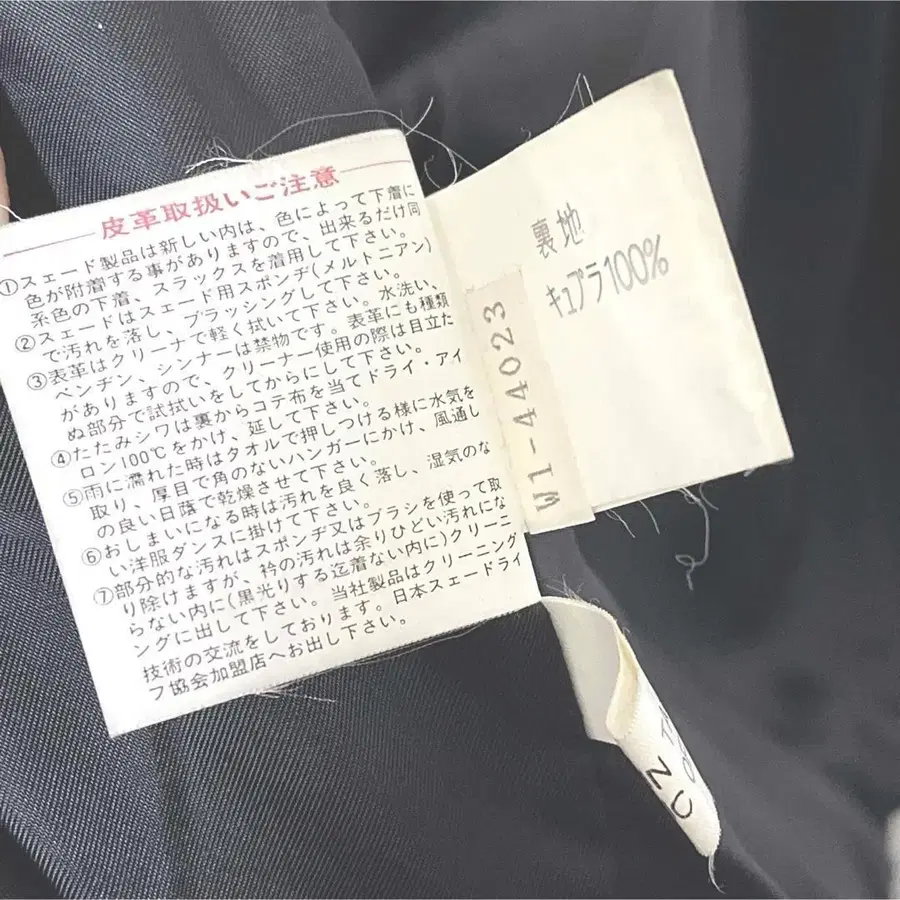 皮革取扱いご注意
①スエード製品は新しい内は、色によって下着に
色が附着する事がありますので、出来るだけ同
系色の下着、スラックスを着用して下さい。
②スエードはスエード用スポンヂ(メルトニアン)
で汚れを落し、ブラッシングして下さい。
③表革はクリーナで軽く拭いて下さい。水洗い、
ベンヂン、シンナーは禁物です。表革にも種類
がありますので、クリーナー使用の際は目立た
ぬ部分で試拭いをしてからにして下さい。
④たたみシワは裏からコテ布を当てドライ・アイ
ロン100℃をかけ、延して下さい。
⑤雨に濡れた時はタオルで押しつける様に水気を
取り、厚目で角のないハンガーにかけ、風通し
の良い日蔭で乾燥させて下さい。
⑥おしまいになる時は汚れを良く落し、湿気のな
い洋服ダンスに掛けて下さい。
⑦部分的な汚れはスポンヂ又はブラシを使って取
り除けますが、衿の汚れは余りひどい汚れにな
らない内に(黒光りする迄着ない内に)クリーニ
ングに出して下さい。当社製品はクリーニング
技術の交流をしております。日本スエードライ
フ協会加盟店へお出し下さい。
裏地
キュプラ100%
W1-44023